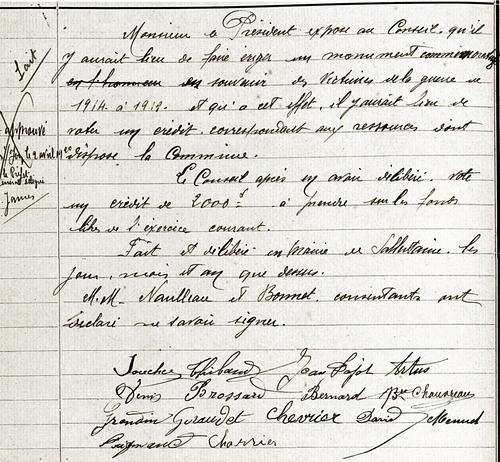 Monsieur le Président expose au Conseil qu'il
y aurait lieu de faire ériger un monument commémoratif
en l'honneur du souvenir des victimes de la guerre de
1914 à 1919. et qu'à cet effet, il y aurait lieu de
voter un crédit correspondant aux ressources dont
dispose la Commune.
Le Conseil après en avoir délibéré vote
un crédit de 2000f à prendre sur les fonds
libres de l'exercice courant.
Fait et délibéré en mairie de Sallertaine. les
jour, mois et an que dessus.
M.M. Naulleau et Bonnet. consentants ont
déclaré ne savoir signer.
Jouches Thibaud Jean Pajot Artus
Denis Brossard Bernard Bte Chauvreau
Grondin Giraudet Chevrier David
Charrier
1 ait
approuvé
2 avril 19
le Préfet
James